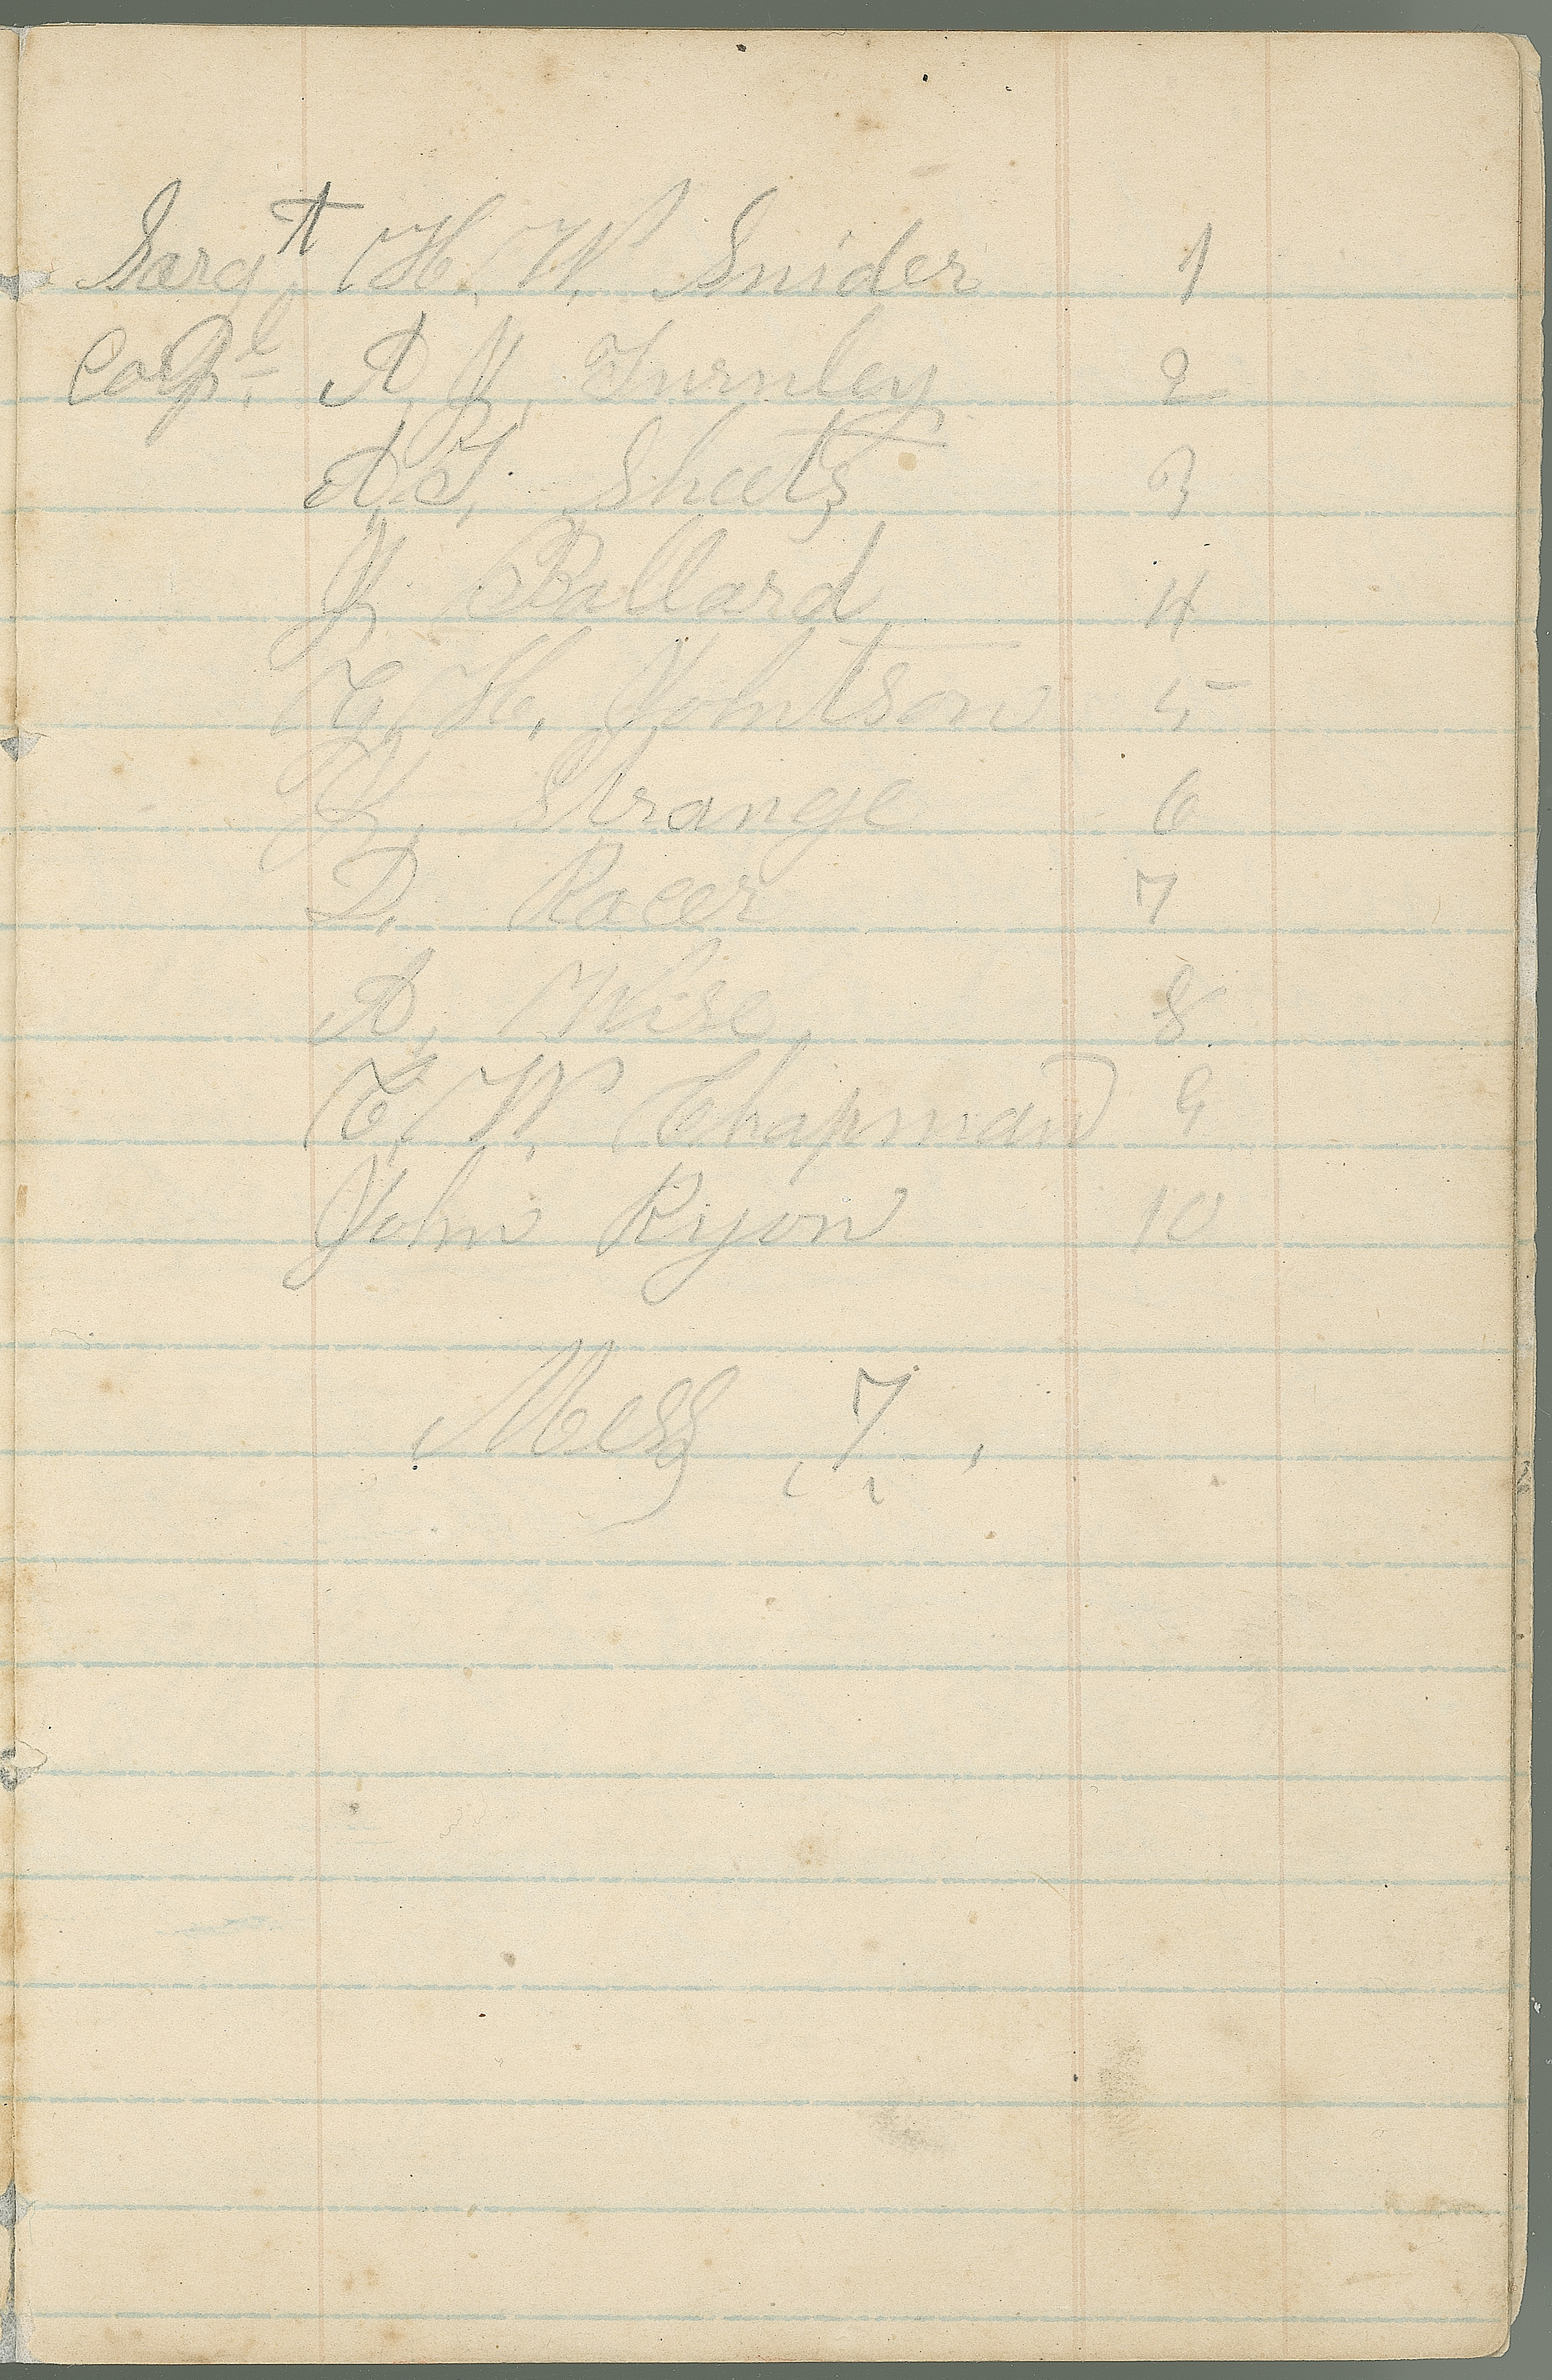 Sargt H. W. Snider 1
Corpl. A. J. Turnley 2
A. T. Sheets 3
J. Ballard 4
G. H. Johntson 5
J. Strange 6
D. Racer 7
A. Wise 8
T. W. Chapman 9
John Ryon 10
Mess 7.